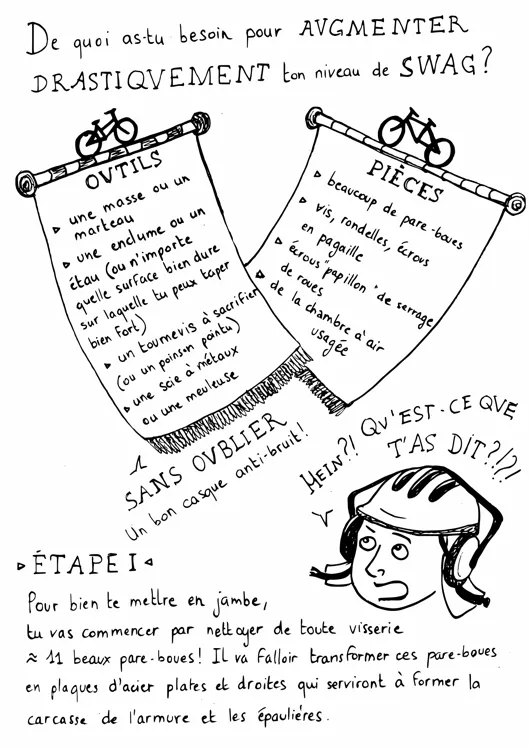 De quoi as-tu besoin pour AUGMENTER
DRASTIQUEMENT ton niveau de SWAG?
OUTILS
▹ une masse ou un
marteau
▹ une enclume ou un
étau (ou n'importe
quelle surface bien dure
sur laquelle tu peux taper
bien fort)
▹ un tournevis à sacrifier
(ou un poinson pointu)
▹ une scie à métaux
ou une meuleuse
PIÈCES
▹ beaucoup de pare-boues
▹ vis, rondelles, écrous
en pagaille
▹ écrous "papillon" de serrage
de roues
▹ de la chambre à air
usagée
SANS OUBLIER
Un bon casque anti-bruit!
HEIN?! QU'EST-CE QUE
T'AS DIT?!?!
▹ ÉTAPE I ◃
Pour bien te mettre en jambe,
tu vas commencer par nettoyer de toute visserie
≈ 11 beaux pare-boues! Il va falloir transformer ces pare-boues
en plaques d'acier plates et droites qui serviront à former la
carcasse de l'armure et les épaulières.